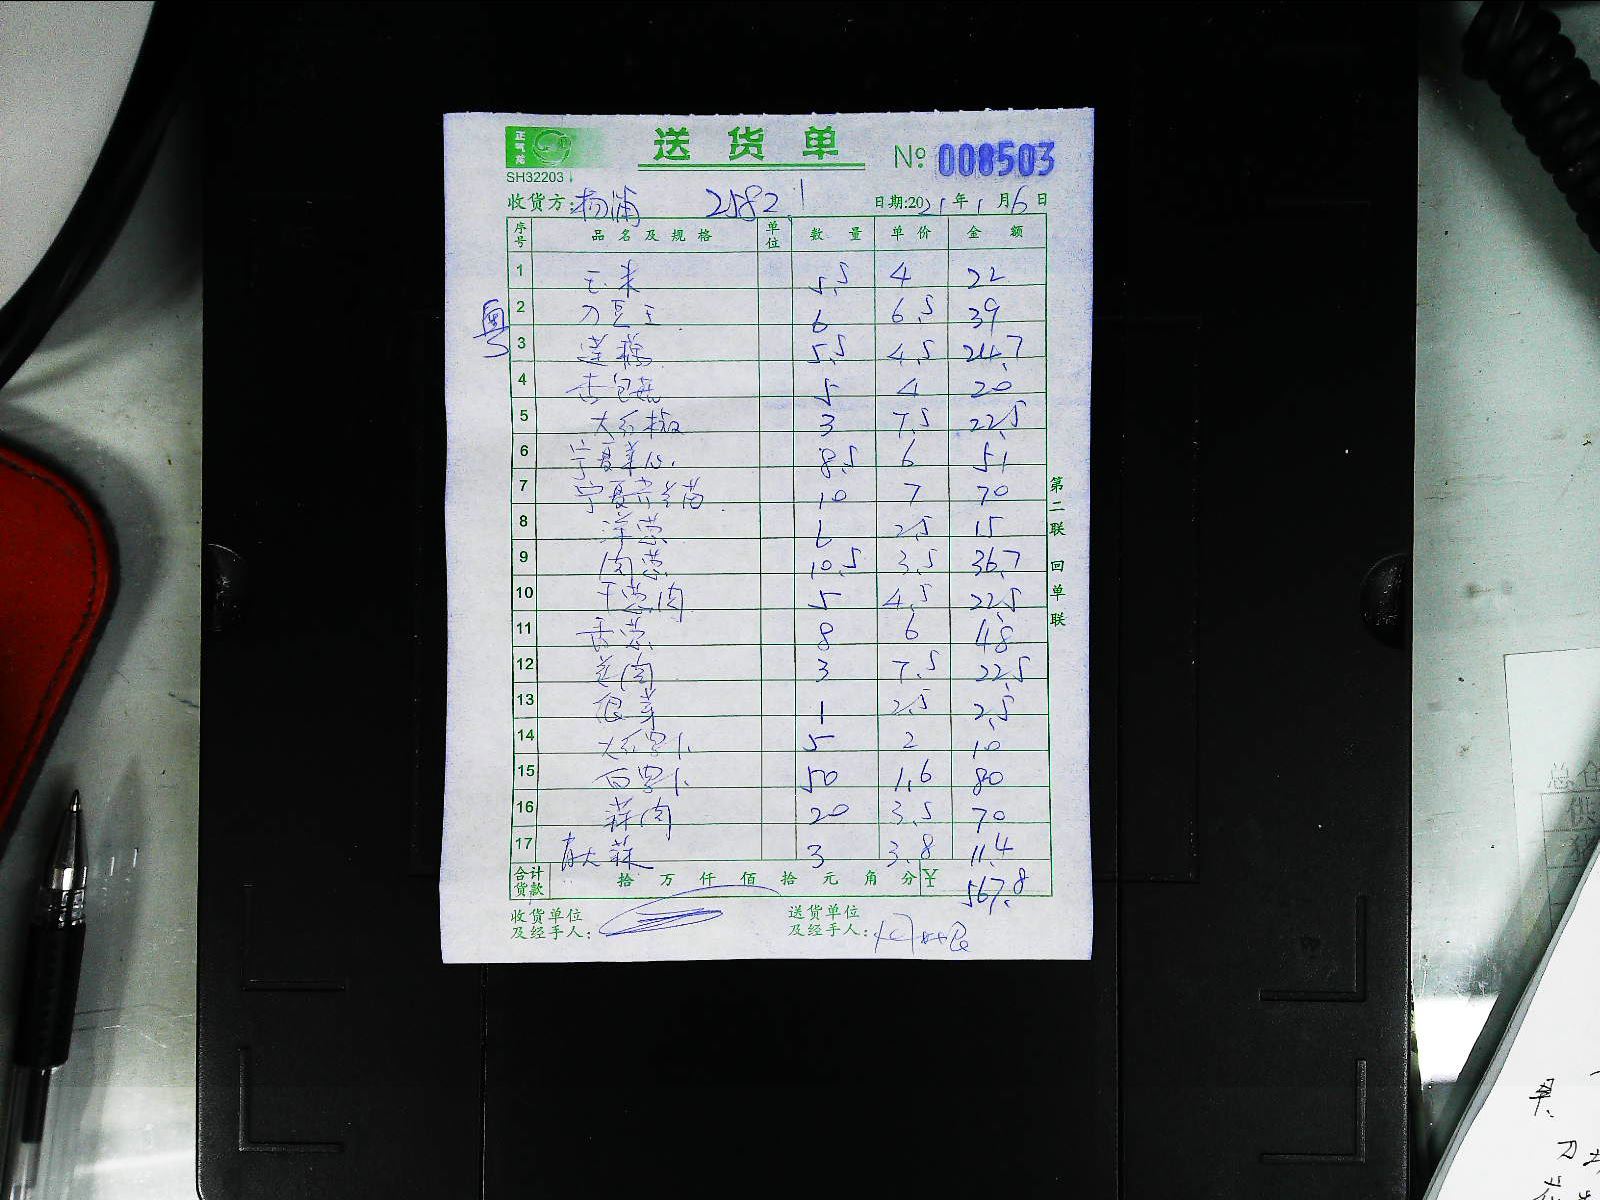 正气龙
送货单
SH32203
№ 008503
收货方:杨浦 2582 日期:2021年1月6日
序号 品名及规格 单位 数量 单价 金额
1 玉米 5.5 4 22
2 刀豆王 6 6.5 39
3 莲藕 5.5 4.5 24.7
4 杏包菇 5 4 20
5 大红椒 3 7.5 22.5
6 宁夏菜心 8.5 6 51
7 宁夏芥兰苗 10 7 70
8 洋葱 6 2.5 15
9 肉葱 10.5 3.5 36.7
10 干葱肉 5 4.5 22.5
11 香葱 8 6 48
12 姜肉 3 7.5 22.5
13 银芽 1 2.5 2.5
14 大红罗卜 5 2 10
15 白罗卜 50 1.6 80
16 蒜肉 20 3.5 70
17 3 3.8 11.4
粤
合计货款 拾万仟佰拾元角分 ¥ 567.8
收货单位及经手人:
送货单位及经手人:
第二联 回单联